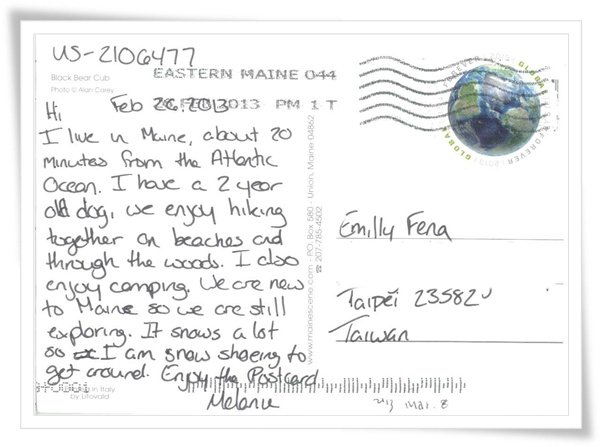 US-2106477
Black Bear Cub
Photo © Alan Carey
EASTERN MAINE 044
26 FEB 2013 PM 1 T
FOREVER 2013
GLOBAL
FOREVER 2013
GLOBAL
Feb 26, 2013
Hi
I live in Maine, about 20
minutes from the Atlantic
Ocean. I have a 2 year
old dog, we enjoy hiking
together on beaches and
through the woods. I also
enjoy camping. We are new
to Maine so we are still
exploring. It snows a lot
so I am snow shoeing to
get around. Enjoy the Postcard
Melanie
in Italy
by Litovald
www.mainescene.com - P.O. Box 580 - Union, Maine 04862
☎ 207-785-4502
Emilly Fena
Taipei 23582
Taiwan
Mar. 8